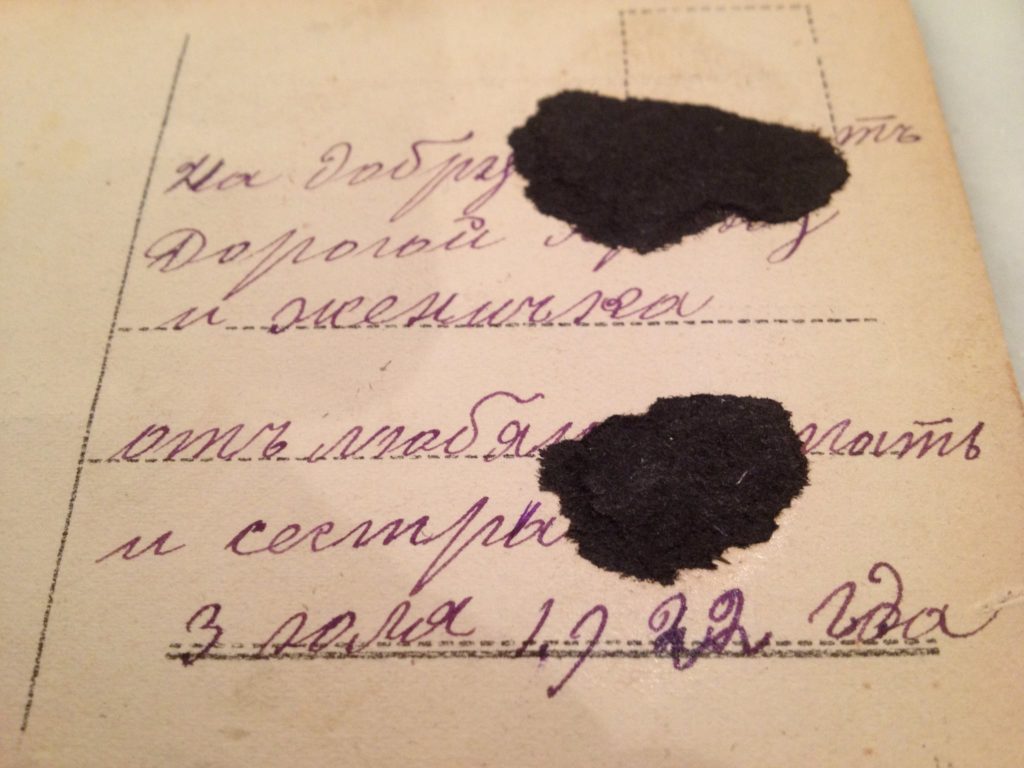 На добру тъ
Дорогой
и женичка
отъ любя мать
и сестры
3 юля 1922 гда